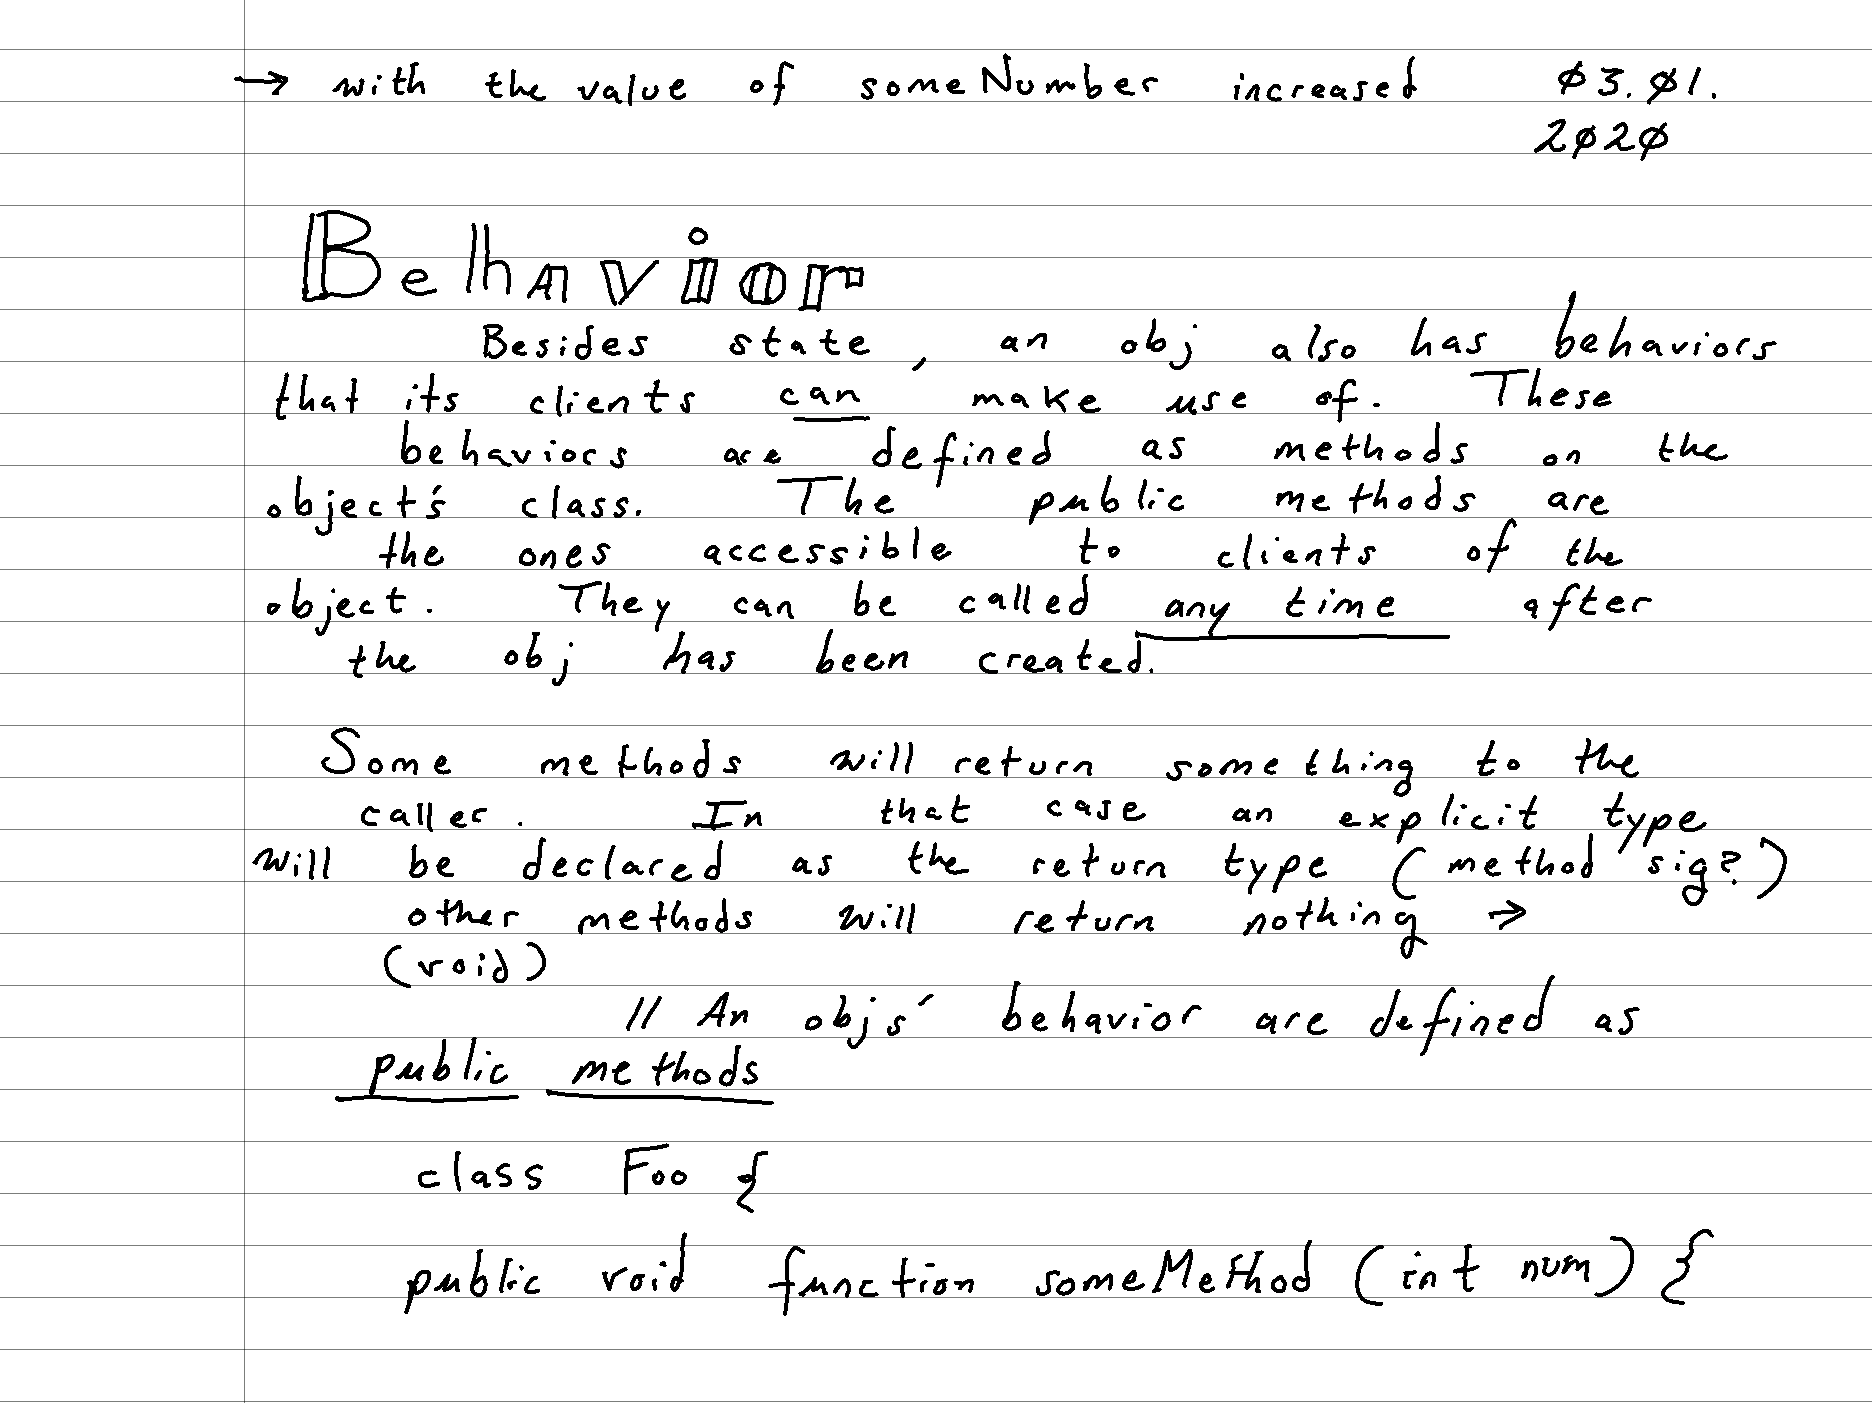 → with the value of someNumber increased 03.01.
2020
Behavior
Besides state, an obj also has behaviors
that its clients can make use of. These
behaviors are defined as methods on the
object's class. The public methods are
the ones accessible to clients of the
object. They can be called any time after
the obj has been created.
Some methods will return something to the
caller. In that case an explicit type
will be declared as the return type (method sig?)
other methods will return nothing →
(void)
// An objs' behavior are defined as
public methods
class Foo {
public void function someMethod (int num) {